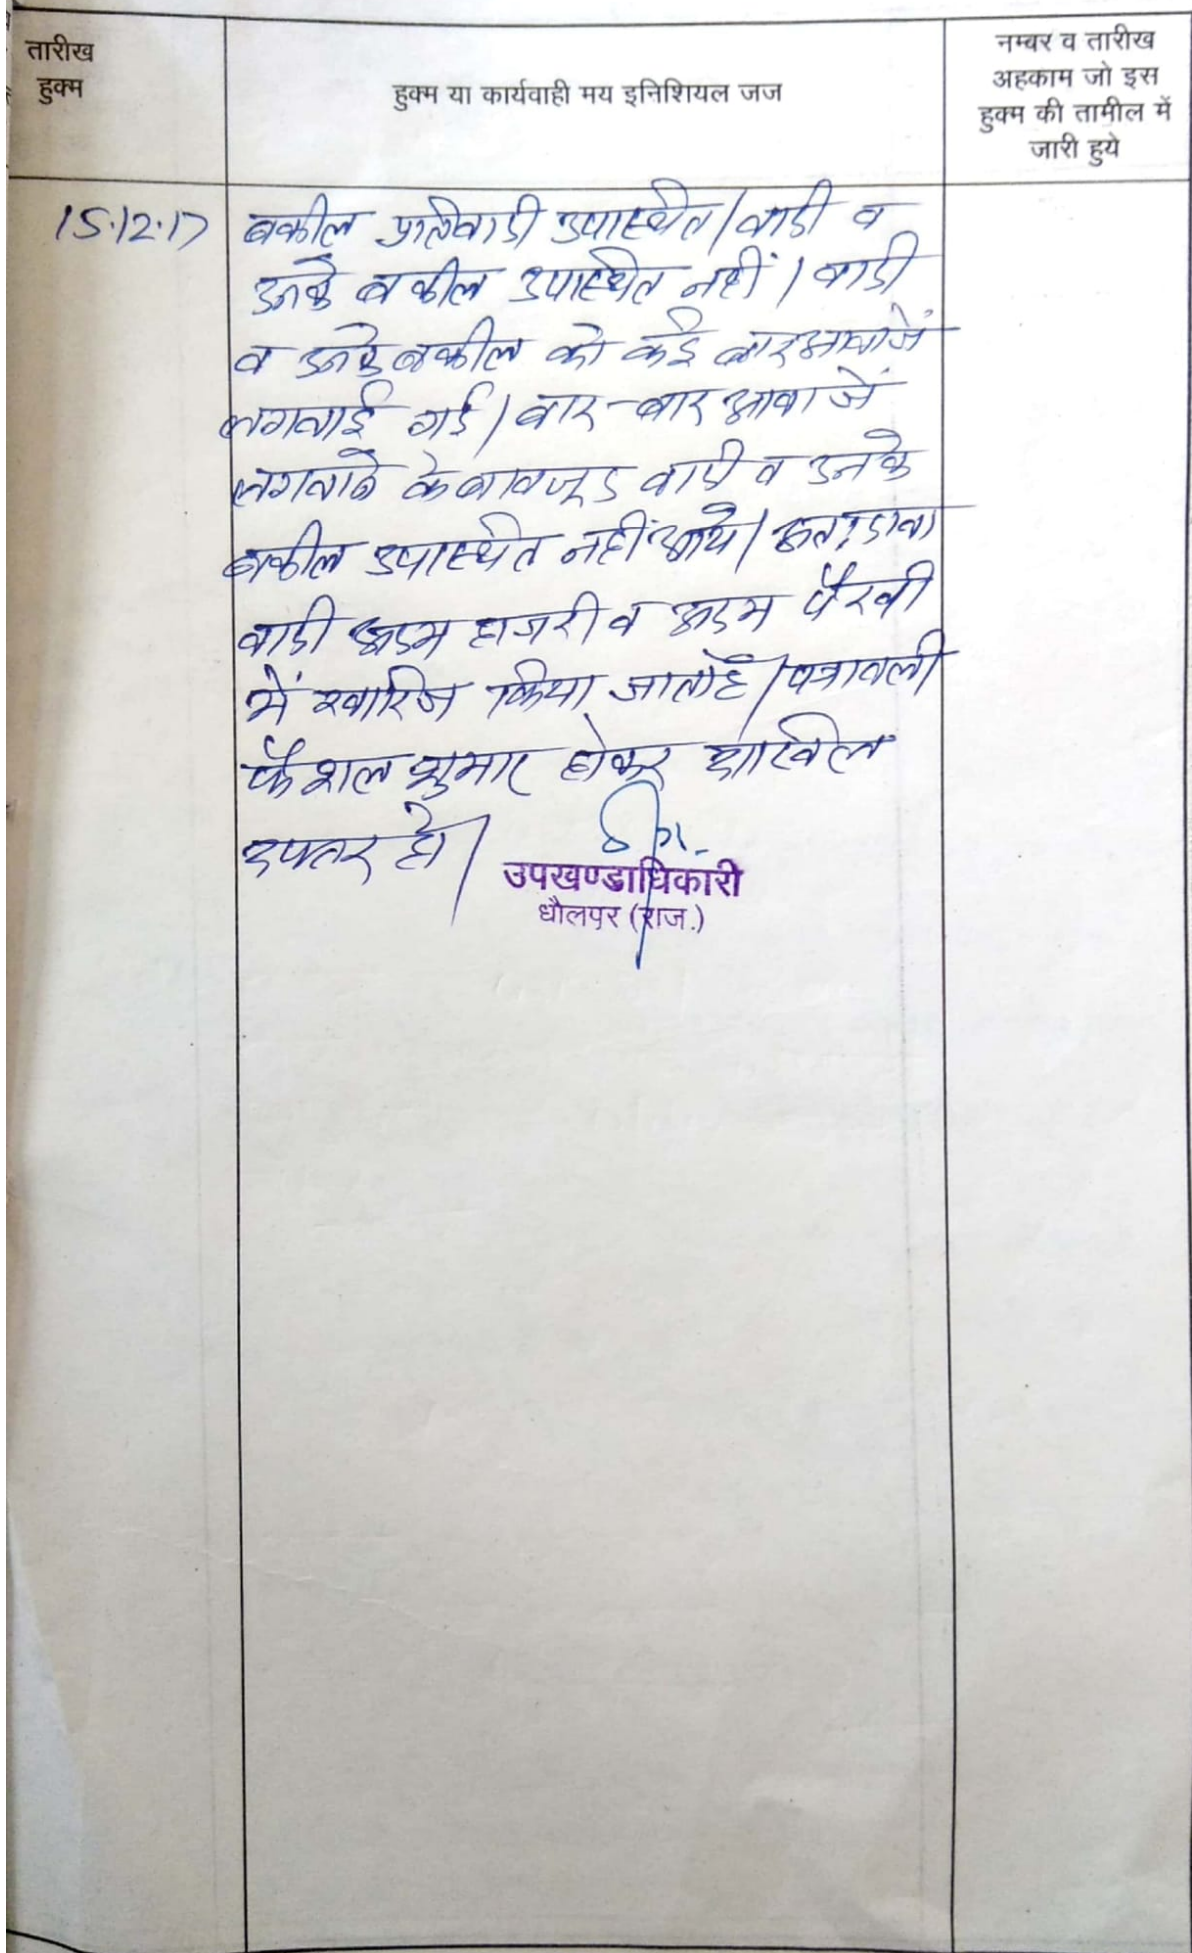 तारीख
हुक्म
हुक्म या कार्यवाही मय इनिशियल जज
नम्बर व तारीख
अहकाम जो इस
हुक्म की तामील में
जारी हुये
15.12.17
वकील प्रतिवादी उपस्थित। वादी व
उनके वकील उपस्थित नहीं। वादी
व उनके वकील को कई बार आवाजें
लगवाई गई। बार-बार आवाजें
लगवाने के बावजूद वादी व उनके
वकील उपस्थित नहीं आये। अतः दावा
वादी अदम हाजरी व अदम पैरवी
में खारिज किया जाता है। पत्रावली
फैशल शुमार होकर दाखिल
दफ्तर हो।
उपखण्डाधिकारी
धौलपुर (राज.)